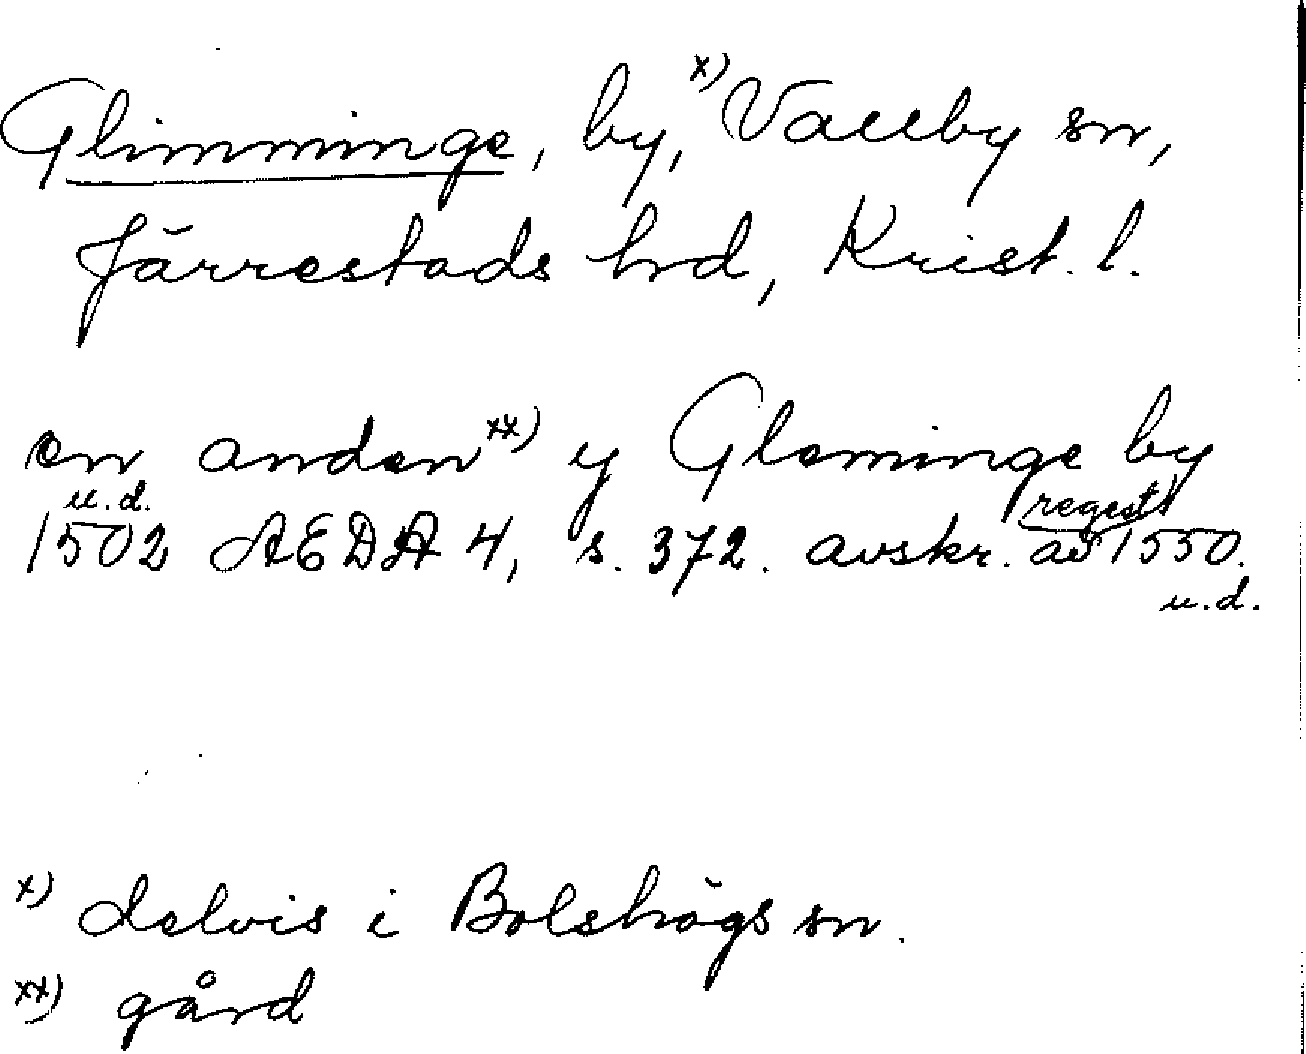 Glimminge, by, x) Vallby sn,
Järrestads hrd, Krist. l.
en anden xx) y Gleminge by
u.d. regest
1502 AEDA 4, s. 372. avskr. av 1550.
u.d.
x) delvis i Bolshögs sn.
xx) gård